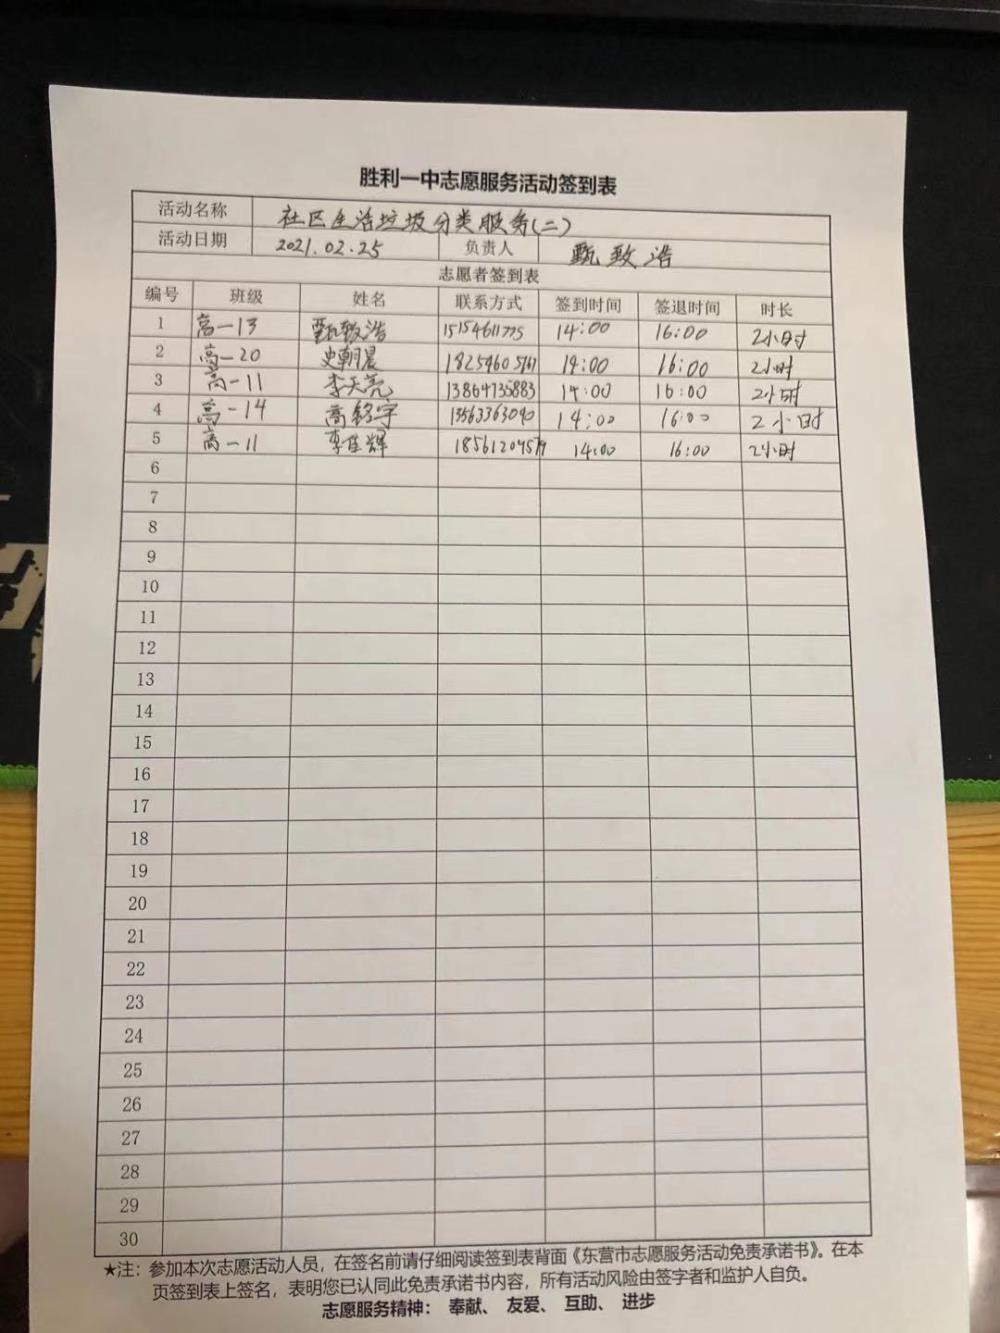 胜利一中志愿服务活动签到表
活动名称 社区生活垃圾分类服务(二)
活动日期 2021.02.25 负责人 甄致浩
志愿者签到表
编号 班级 姓名 联系方式 签到时间 签退时间 时长
1 高一13 甄致浩 15154611775 14:00 16:00 2小时
2 高一20 史朝晨 18254605767 14:00 16:00 2小时
3 高一11 李天亮 13864735883 14:00 16:00 2小时
4 高一14 高铭宇 13563363090 14:00 16:00 2小时
5 高一11 李佳辉 18561209579 14:00 16:00 2小时
6
7
8
9
10
11
12
13
14
15
16
17
18
19
20
21
22
23
24
25
26
27
28
29
30
★注：参加本次志愿活动人员，在签名前请仔细阅读签到表背面《东营市志愿服务活动免责承诺书》。在本
页签到表上签名，表明您已认同此免责承诺书内容，所有活动风险由签字者和监护人自负。
志愿服务精神： 奉献、 友爱、 互助、 进步